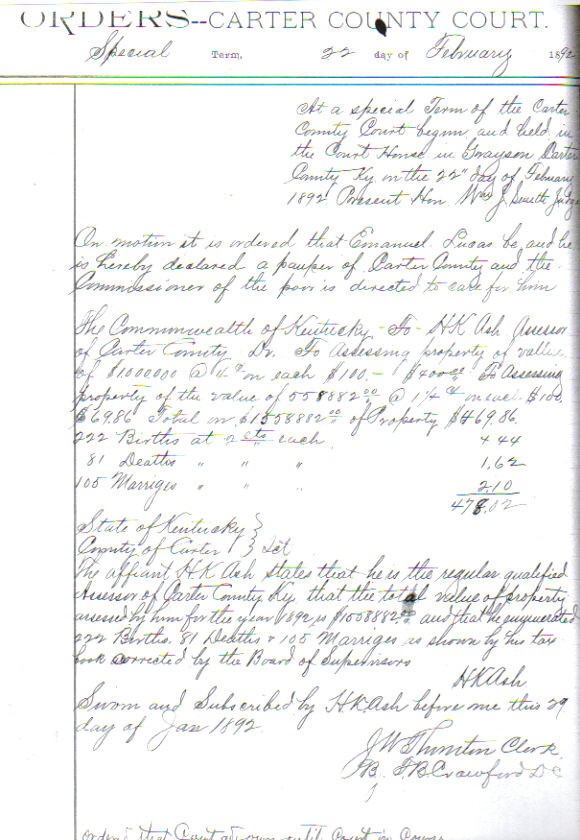 ORDERS--CARTER COUNTY COURT.
Special Term, 22 day of February 1892
At a special Term of the Carter
County Court begun and held in
the Court House in Grayson Carter
County Ky on the 22" day of February
1892 Present Hon Wm J Judge
On motion it is ordered that Emanuel Lucas be, and he
is hereby declared a pauper of Carter County and the
Commissioner of the poor is directed to care for him
The Commonwealth of Kentucky - To - HK Ash Assessor
of Carter County Dr. To Assessing property of value
of $1000000 @ 4 ¢ on each $100 - $400.00 To Assessing
property of the value of 558882.00 @ 1 1/4 ¢ on each $100
$69.86 Total on $1558882.00 of Property $469.86
222 Births at 2 cts each 4 44
81 Deaths " " " 1.62
105 Marriges " " " 2.10
478.02
State of Kentucky }
County of Carter } Sct
The affiant H.K Ash states that he is the regular qualified
Assessor of Carter County Ky that the total value of property
assessed by him for the year 1892 is $1558882.00 and that he enumerated
222 Births. 81 Deaths & 105 Marriges as shown by his tax
book corrected by the Board of Supervisors
HK Ash
Sworn and Subscribed by H.K. Ash before me this 29
day of Jan 1892.
J W Thornton Clerk
B. F B Crawford DC
that Court until Court in Course